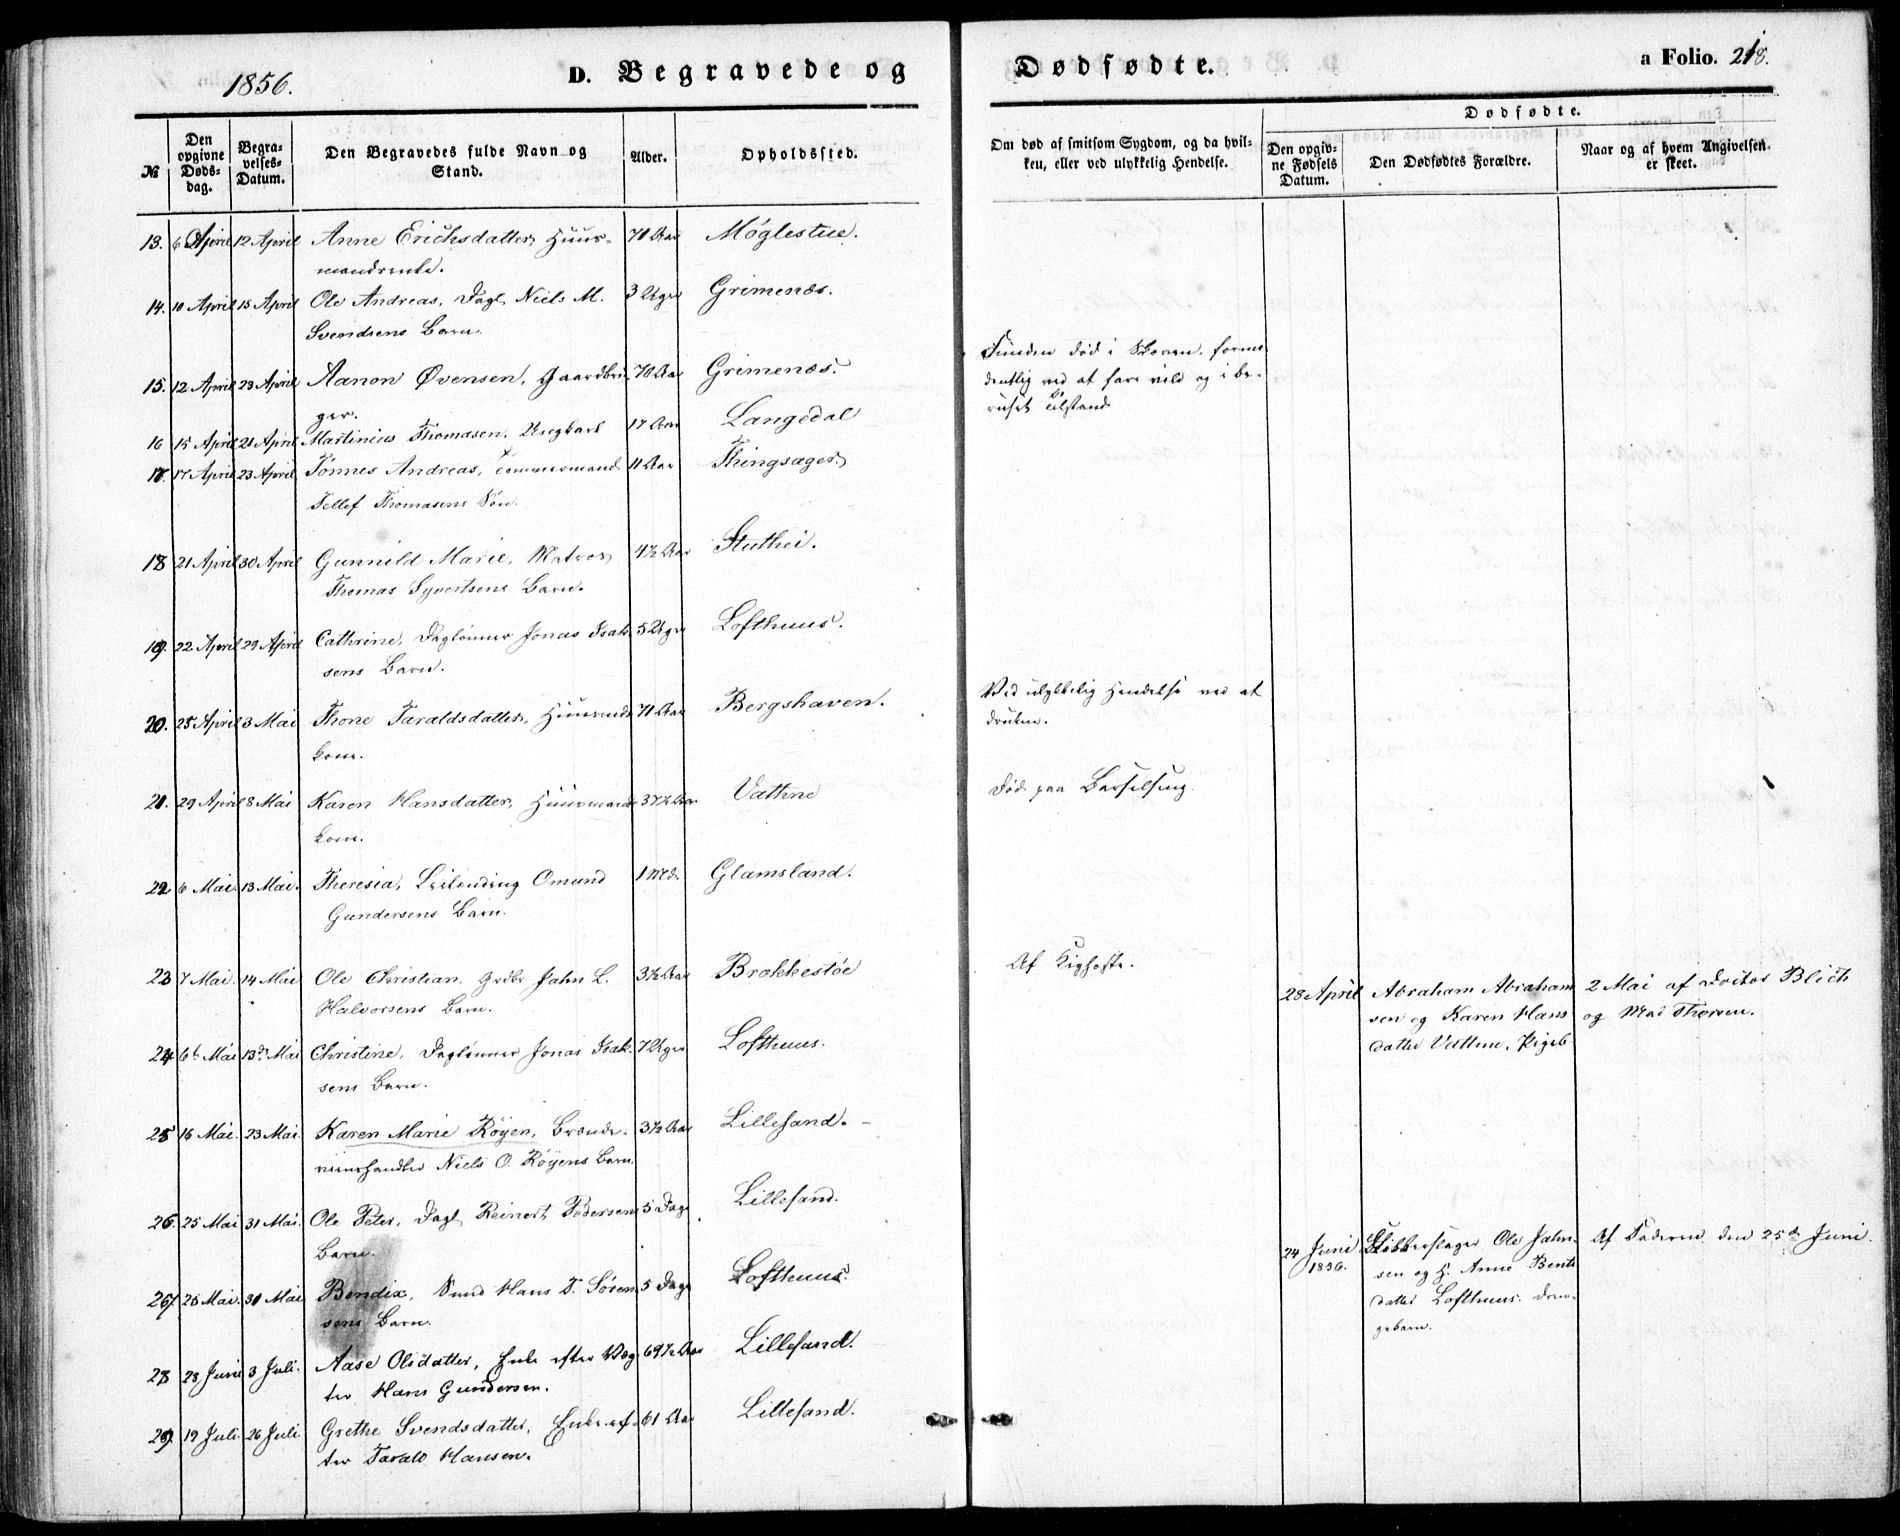 1856.
D. Begravede og
Dødfødte.
a Folio. 218.
№
Den opgivne Døds-dag.
Begra-velses-Datum.
Den Begravedes fulde Navn og Stand.
Alder.
Opholdssted.
Om død af smitsom Sygdom, og da hvil-ken, eller ved ulykkelig Hendelse.
Dødfødte.
Den opgiv-ne Fødsels Datum.
Den Dødfødtes Forældre.
Naar og af hvem Angivelsen er skeet.
13. 6 April 12 April Anne Erichsdatter, Huus- 70 Aar Møglestue.
mandsenke.
14. 10 April 15 April Ole Andreas, Dagl. Niels M. 3 Uger Grimenæs.
Svendsens Barn.
15. 12 April 23 April Aanon Øvensen, Gaardbru- 70 Aar Grimenæs. Funden død i Skoven, forme-
ger. dentlig ved at fare vild og i be-
ruset Tilstand
16 15 April 21 April Martinius Thomasen, Ungkarl 17 Aar Langedal
17. 17 April 23 April Tønnes Andreas, Tømmermand 11 Aar Thingsager.
Tellef Thomasens Søn.
18 21 April 30 April Gunnild Marie, Matros 4½ Aar Stuthei.
Thomas Syvertsens Barn.
19. 22 April 29 April Cathrine, Daglønner Jonas Isak- 5 Uger Lofthuus.
sens Barn.
20. 25 April 3 Mai Thone Taraldsdatter, Huusmds 71 Aar Bergshaven. Ved ulykkelig Hendelse ved at
kone. drukne.
21. 29 April 8 Mai Karen Hansdatter, Huusmands 37½ Aar Vattne Død paa Barselseng.
kone.
22 6 Mai. 13 Mai. Theresia, Leilending Omund 1 Md. Glamsland.
Gundersens Barn.
23 7 Mai. 14 Mai Ole Christian, Grdbr Jahn L. 3½ Aar Brækkestøe Af Kighoste.
Halvorsens Barn.
28 April Abraham Abraham- 2 Mai af Doctor Blich
sen og Karen Hans og Mad Thorsen.
datter Vattne, Pigeb.
24 6te Mai 13de Mai Christine, Daglønner Jonas Isak- 7 Uger Lofthuus.
sens Barn.
25 16 Mai. 23 Mai. Karen Marie Røyen, Brænde- 3½ Aar Lillesand.
viinshandler Niels O. Røyens Barn.
26. 25 Mai 31 Mai. Ole Peter, Dagl. Reinert Pedersens 5 Dage Lillesand.
Barn.
24 Juni 1856. Blokkeslager Ole Jahn- Af Faderen den 25de Juni.
sen og H. Anne Bents
datter Lofthuus. Dren-
gebarn.
27 25 Mai. 30 Mai Bendix, Smed Hans T. Søren 5 Dage Lofthuus.
sens Barn.
28 28 Juni 3 Juli. Aase Olsdatter, Enke efter Væg- 69½ Aar Lillesand.
ter Hans Gundersen.
29. 19 Juli. 26 Juli Grethe Svendsdatter, Enke ef- 61 Aar Lillesand.
ter Tarald Hansen.